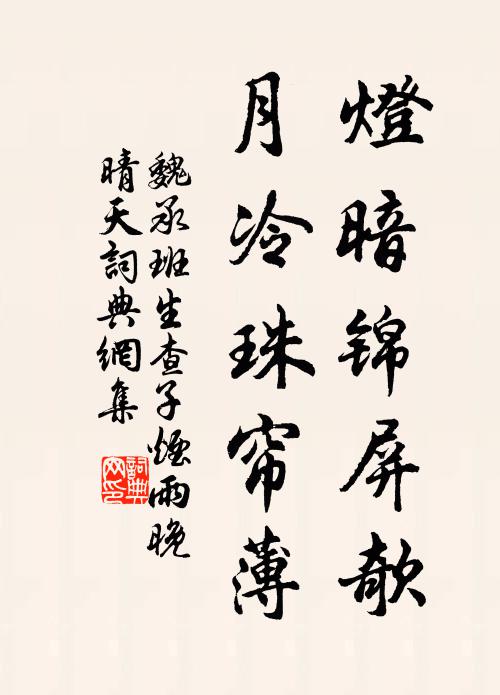 燈暗锦屏欹
月冷珠帘薄
魏承班生查子煙雨晚
晴天詞典網集
詞典
网印